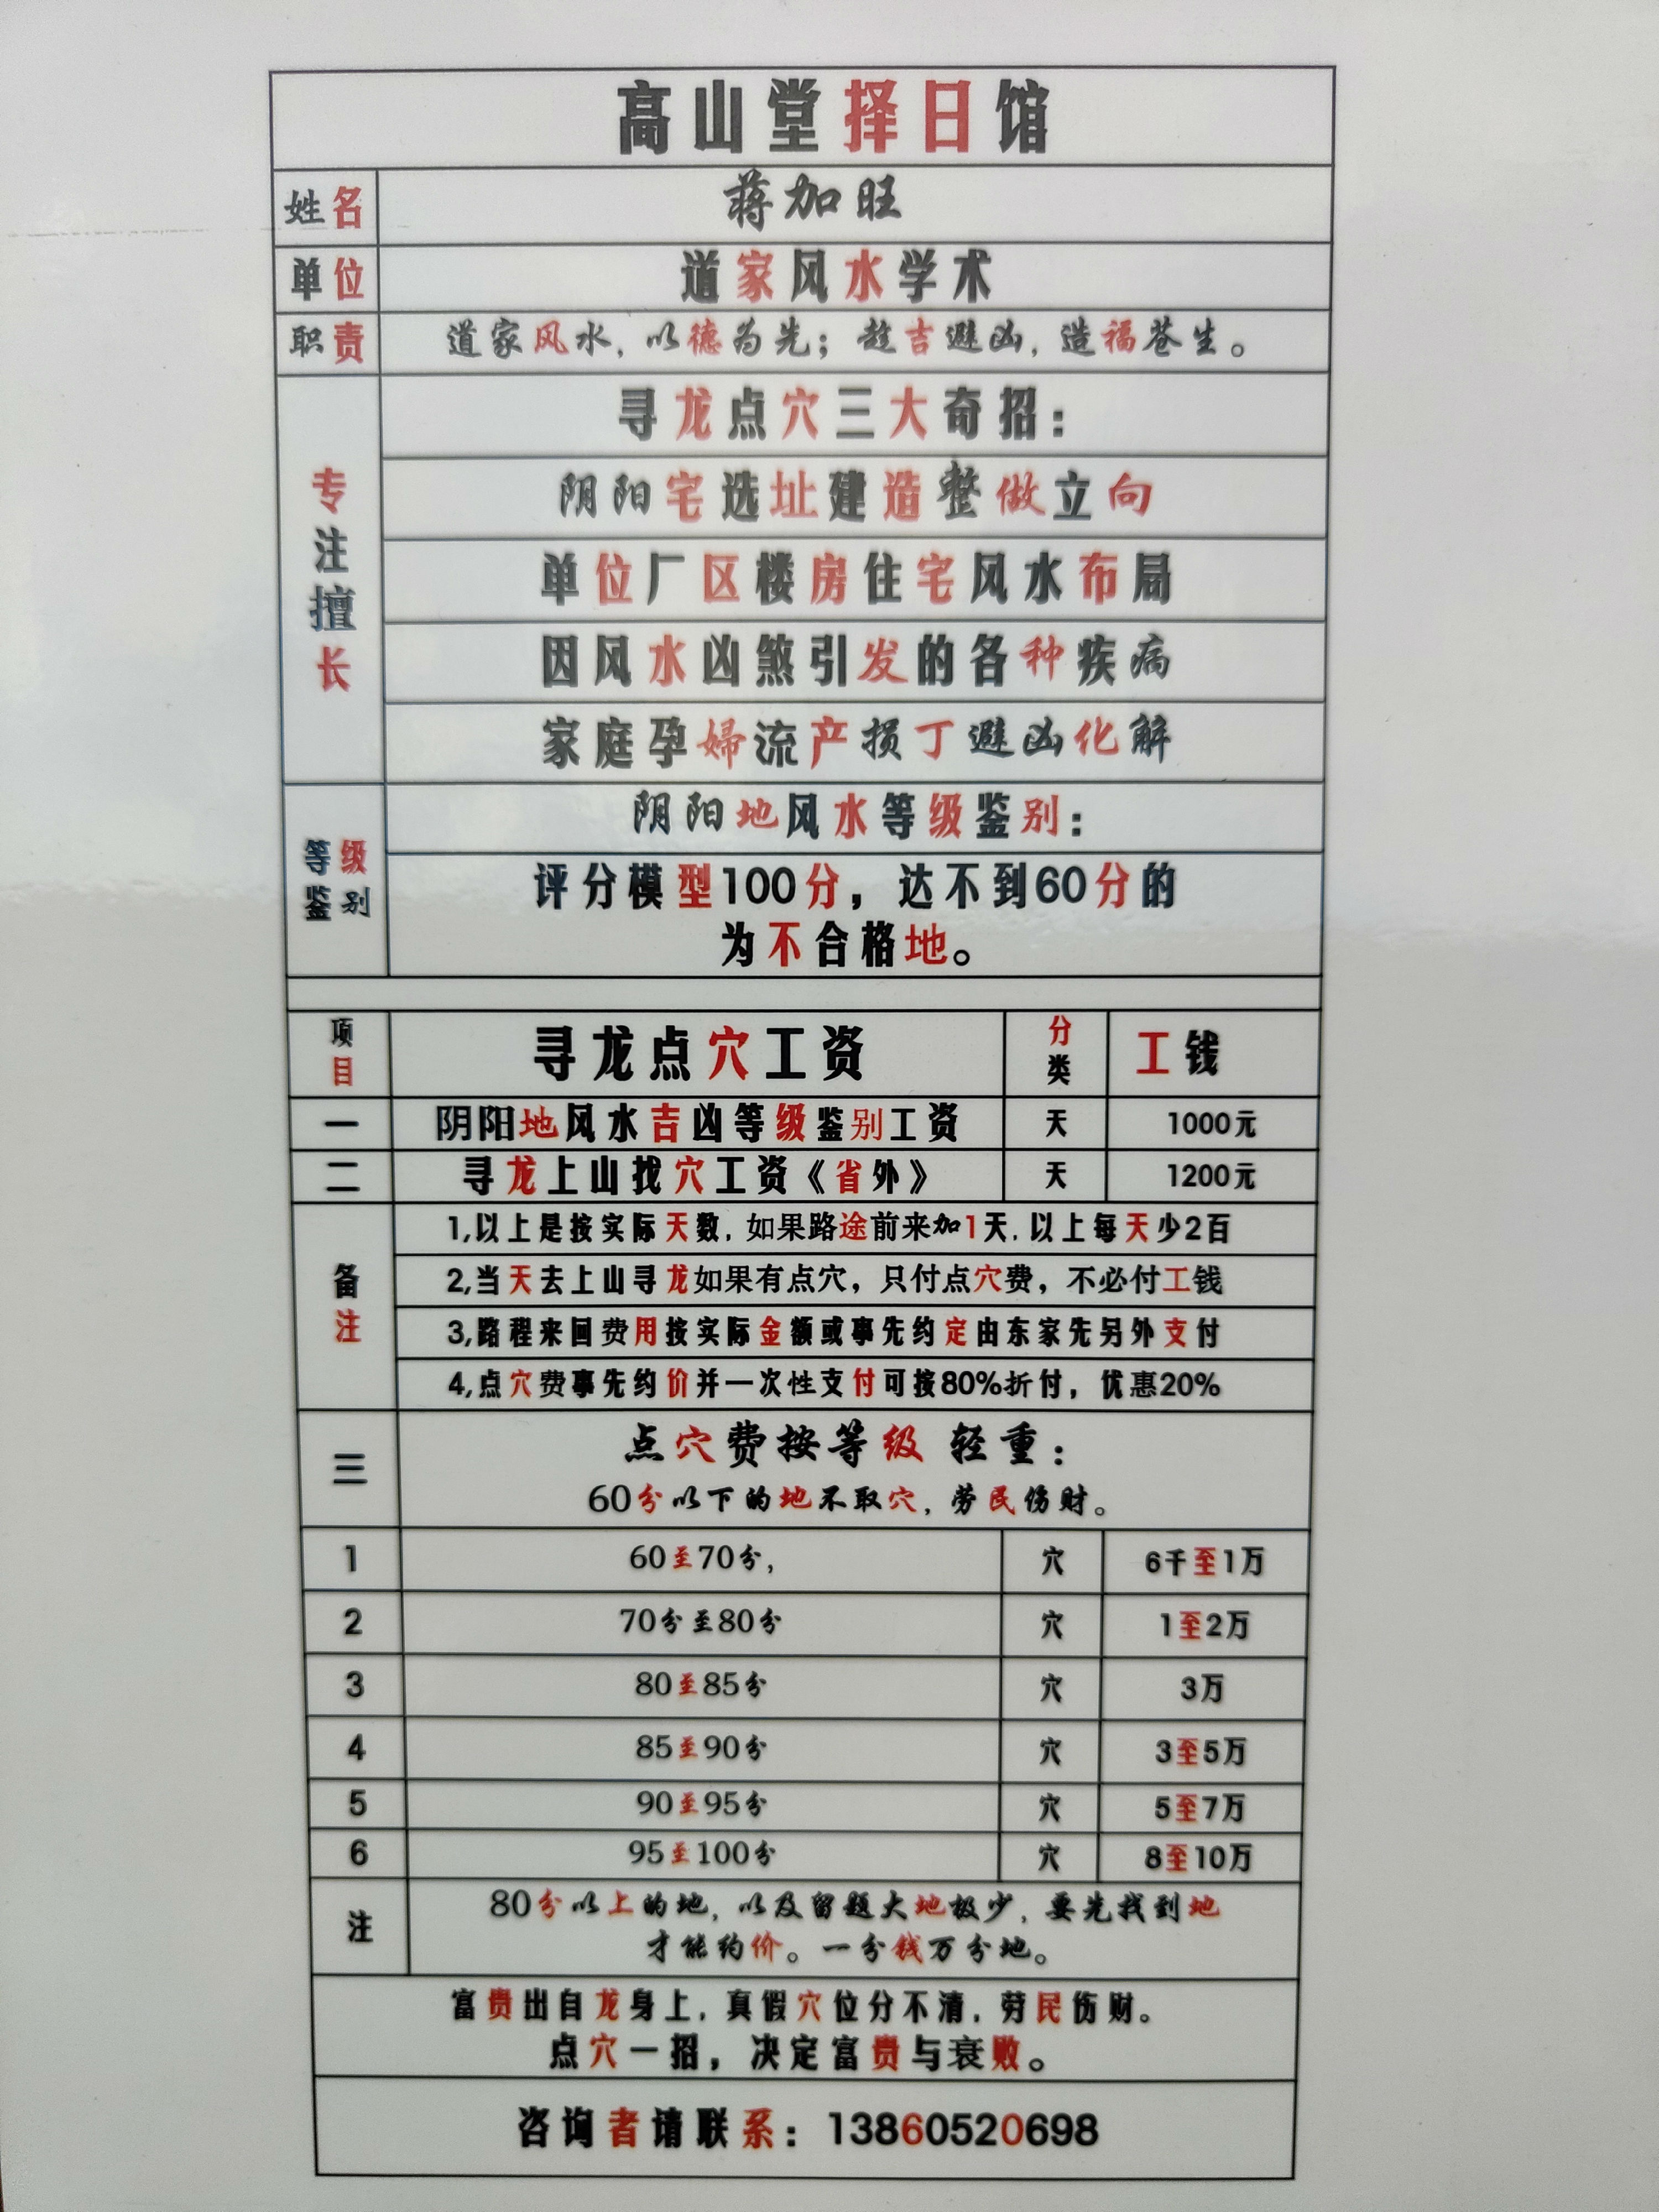 高山堂择日馆
姓名 蒋加旺
单位 道家风水学术
职责 道家风水，以德为先；趋吉避凶，造福苍生。
专注擅长
寻龙点穴三大奇招：
阴阳宅选址建造整做立向
单位厂区楼房住宅风水布局
因风水凶煞引发的各种疾病
家庭孕婦流产损丁避凶化解
等级
鉴别
阴阳地风水等级鉴别：
评分模型100分，达不到60分的
为不合格地。
项目 寻龙点穴工资 分类 工钱
一 阴阳地风水吉凶等级鉴别工资 天 1000元
二 寻龙上山找穴工资《省外》 天 1200元
备注
1,以上是按实际天数，如果路途前来加1天，以上每天少2百
2,当天去上山寻龙如果有点穴，只付点穴费，不必付工钱
3,路程来回费用按实际金额或事先约定由东家先另外支付
4,点穴费事先约价并一次性支付可按80%折付，优惠20%
三 点穴费按等级 轻重：
60分以下的地不取穴，劳民伤财。
1 60至70分， 穴 6千至1万
2 70分至80分 穴 1至2万
3 80至85分 穴 3万
4 85至90分 穴 3至5万
5 90至95分 穴 5至7万
6 95至100分 穴 8至10万
注 80分以上的地，以及留题大地极少，要先找到地
才能约价。一分钱万分地。
富贵出自龙身上，真假穴位分不清，劳民伤财。
点穴一招，决定富贵与衰败。
咨询者请联系：13860520698